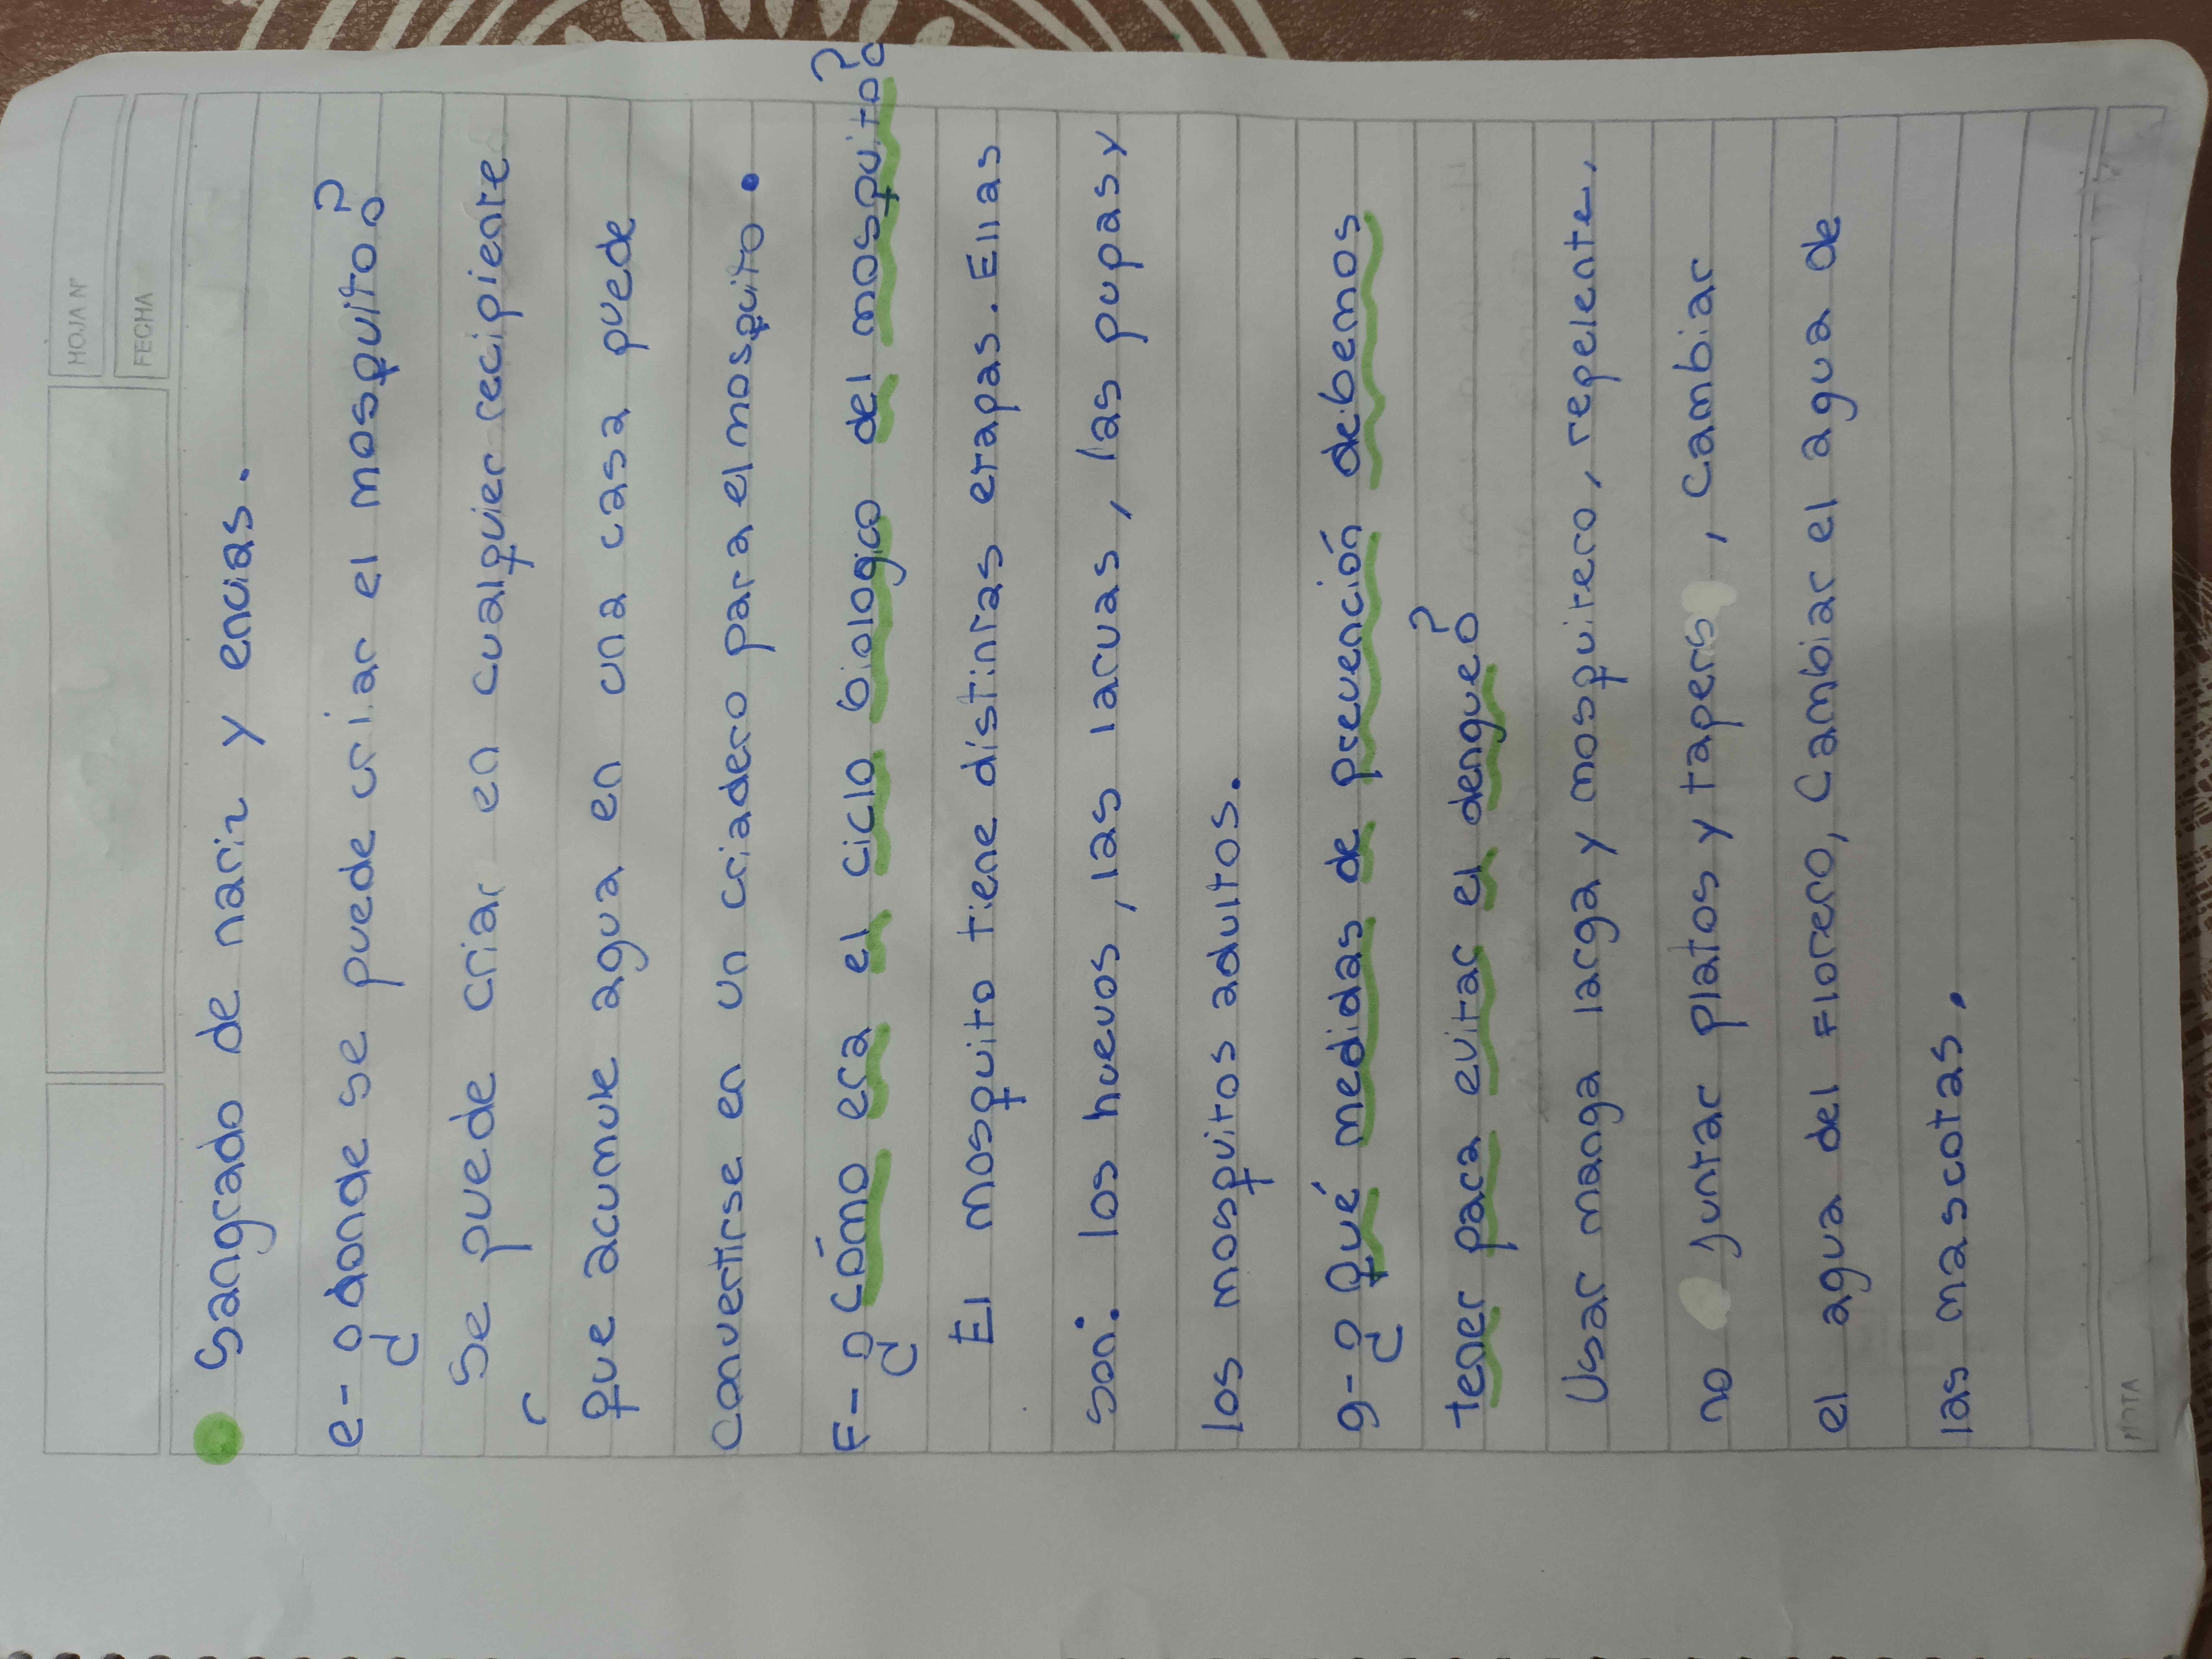 HOJA N°
FECHA
Sangrado de nariz y encias.
e- ¿donde se puede criar el mosquito?
Se puede criar en cualquier recipiente
que acumule agua en una casa puede
convertirse en un criadero para el mosquito.
F- ¿cómo era el ciclo biologico del mosquito?
El mosquito tiene distintas etapas. Ellas
son: los huevos, las larvas, las pupas y
los mosquitos adultos.
g- ¿Qué medidas de prevención debemos
tener para evitar el dengue?
Usar manga larga y mosquitero, repelente,
no juntar platos y tapers, cambiar
el agua del Florero, Cambiar el agua de
las mascotas.
NOTA